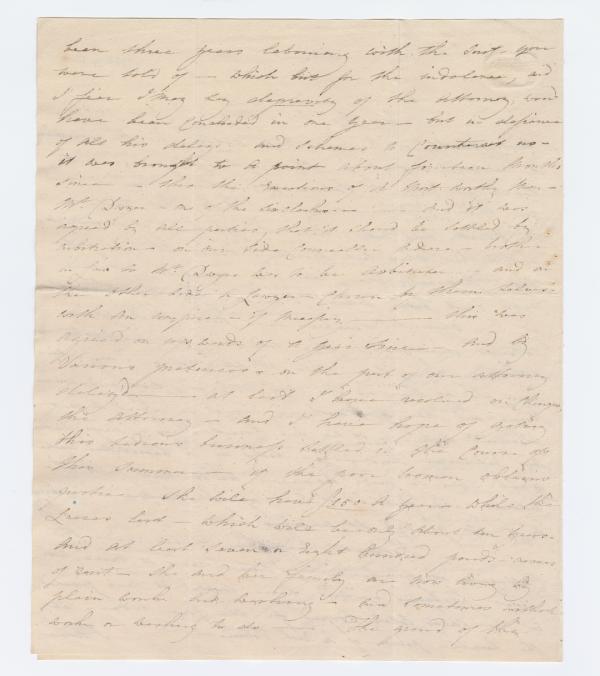 been three years labouring with the Suit you
were told of – which but for the indolence, and
I fear I may say depravity of the Attorney would
have been concluded in one year – but in defiance
of all his delays – and schemes to Counteract us –
it was brought to a point about fourteen Months
Since – thro the exertions of a Most worthy Man –
Mr Dwyer – one of the – and it was
agreed by all parties, that it should be settled by
arbitration – on our side Counsellor – brother
in law to Mr Dwyer was to be arbitrator – and on
the other side a Lawyer – chosen by them selves
with an umpire – if necessary – this was
agreed on upwards of a year since – and by
Various pretences on the part of our attorney
delay'd – at last I have resolved on changing
the attorney – and I have hope of getting
this tedious business settled in the Course of
this Summer – if the poor woman obtains
justice She will have £150 a year while the
Leases last – which will be only about ten years
and at least seven or eight hundred pounds
of rent – she and her family are now living by
plain work and washing – and sometimes without
work or washing to do – The